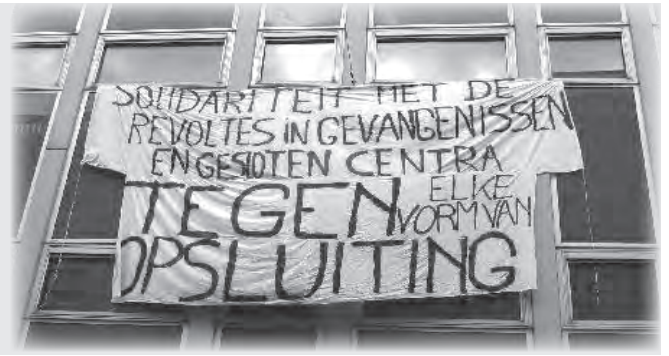 SOLIDARITEIT MET DE
REVOLTES IN GEVANGENISSEN
EN GESLOTEN CENTRA
TEGEN ELKE VORM VAN
OPSLUITING